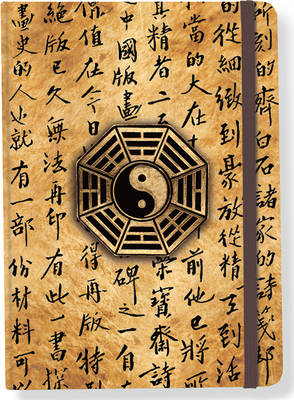 所刻的齊白石諸家的詩箋
的從細緻到豪放從精工到活
當的大在 前他已將
其精者二 榮寶齋詩
中國版畫 碑之一自
保值在今日 得再版特別
絕版已久無法再印有些一書探
畫史的人也就有一部份材料可以